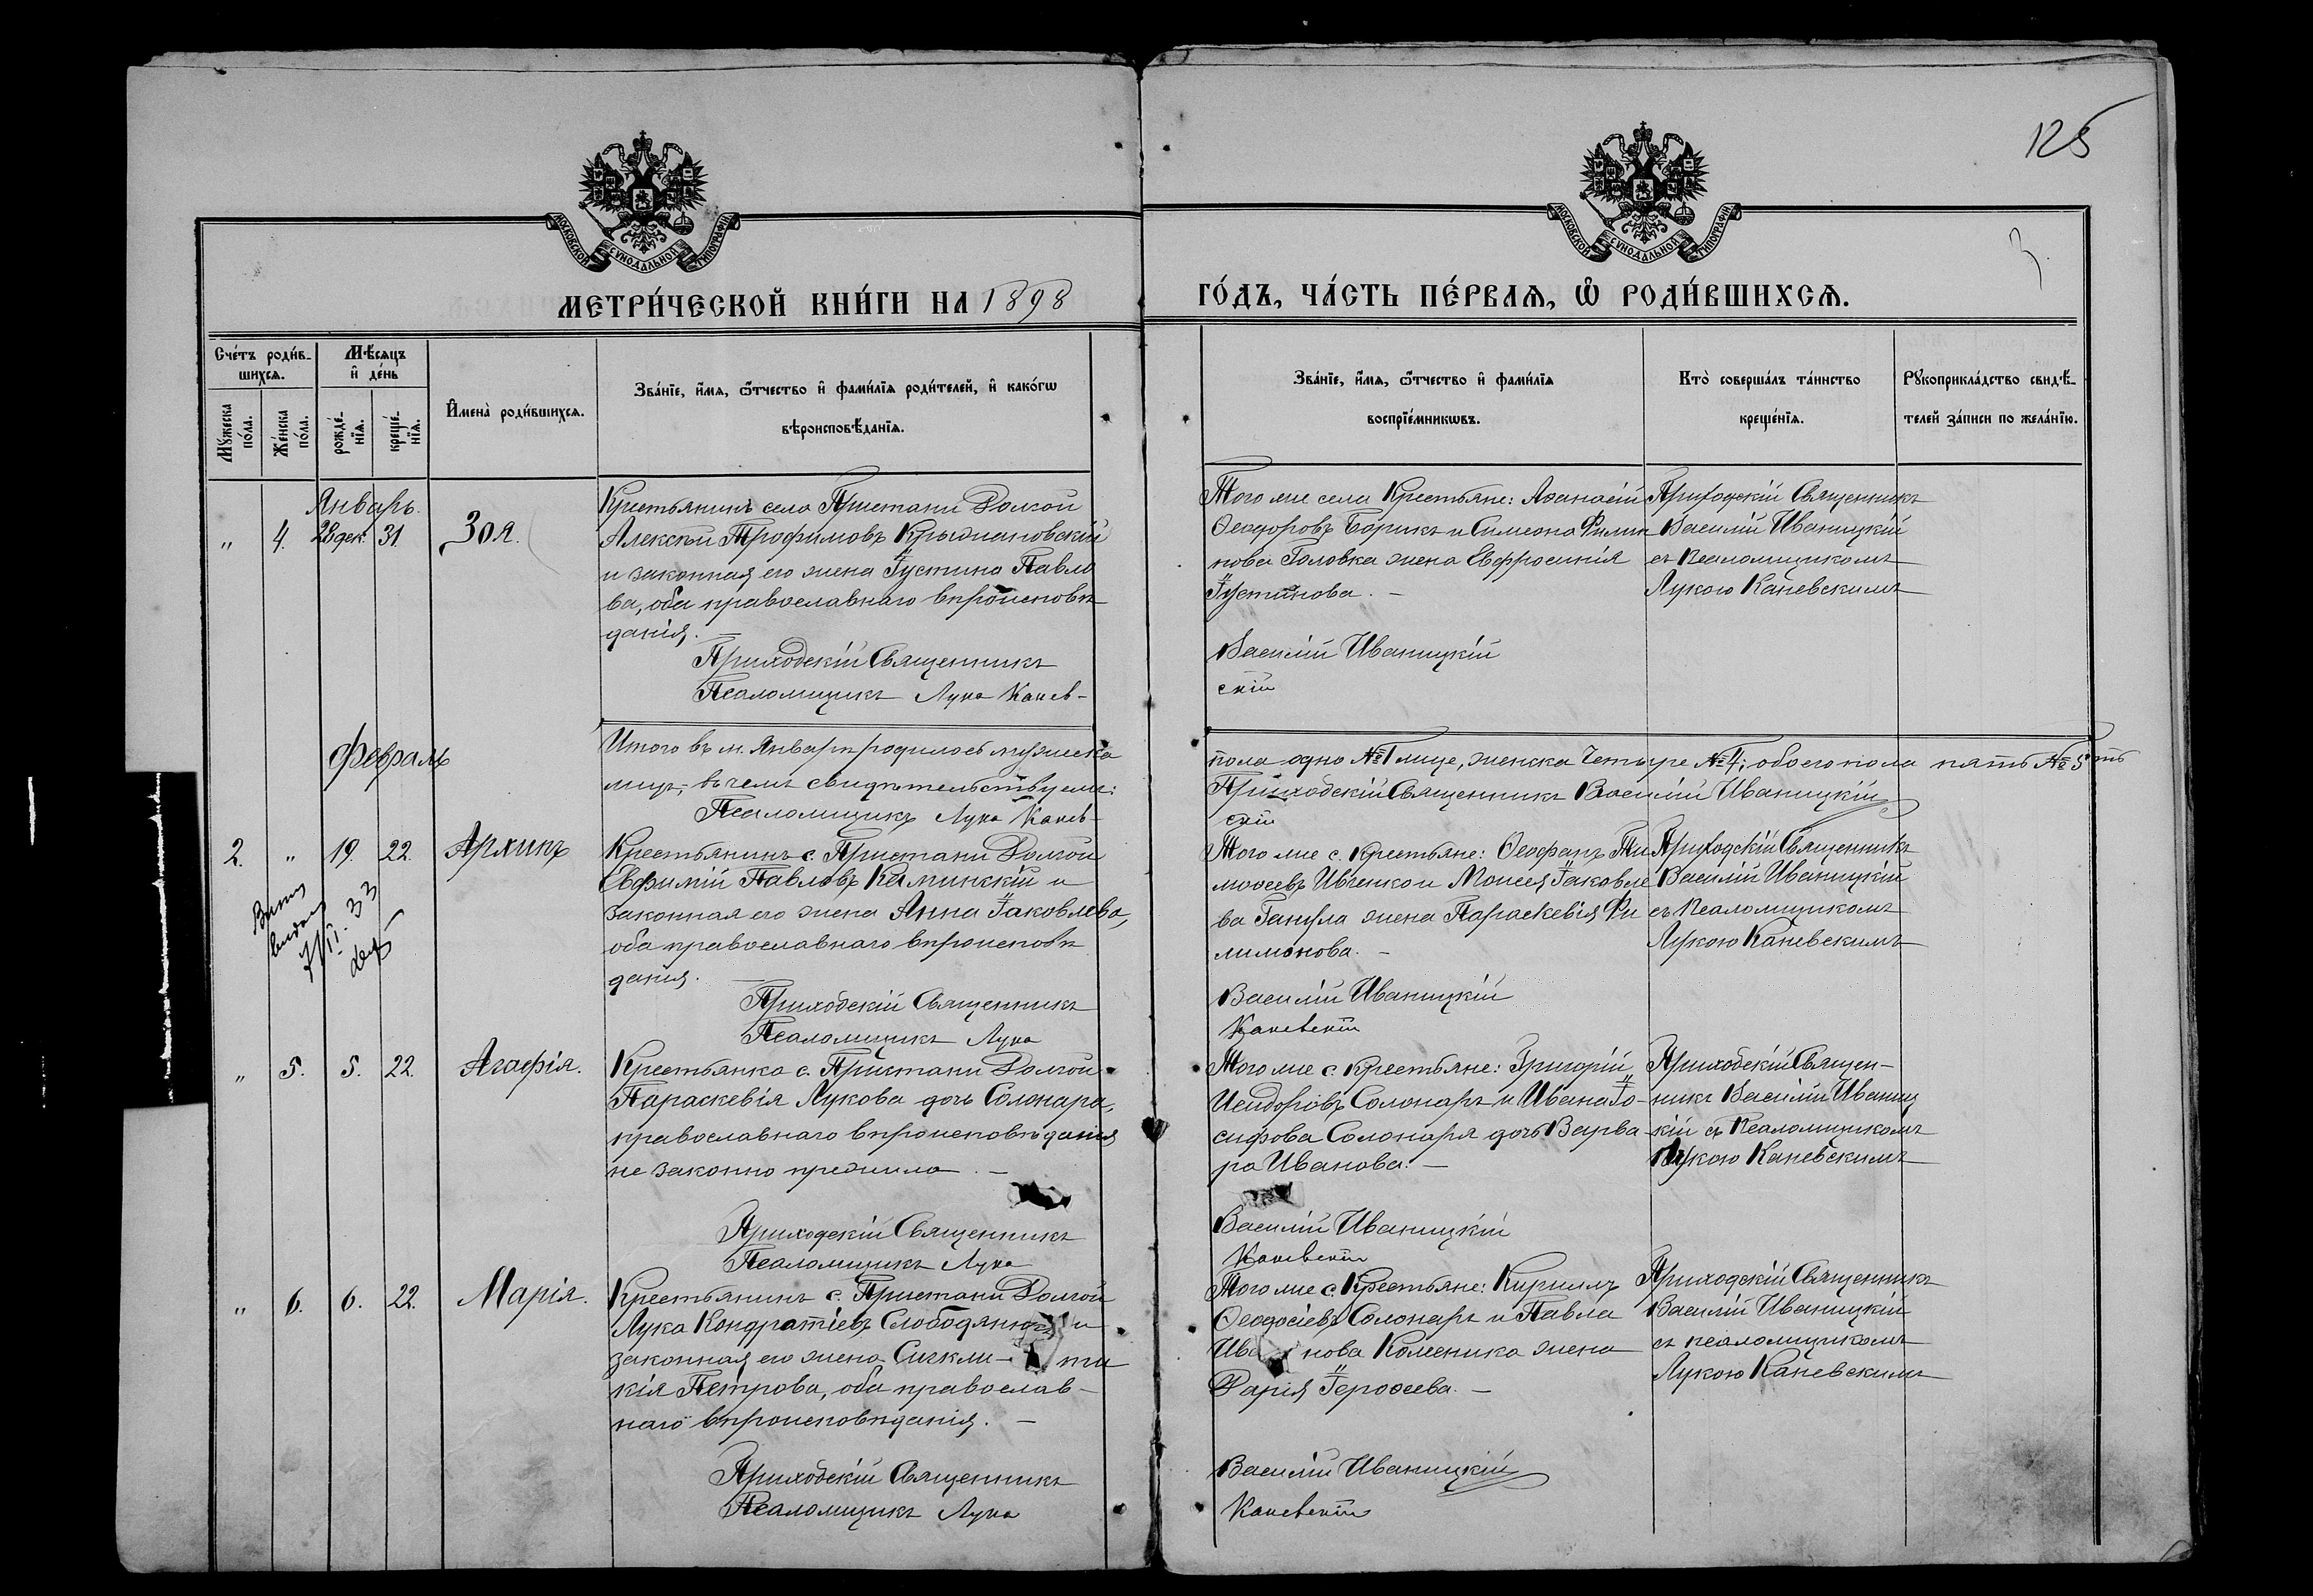 125
3
МОСКОВСКОЙ СУНОДАЛЬНОЙ ТИПОГРАФІИ
МОСКОВСКОЙ СУНОДАЛЬНОЙ ТИПОГРАФІИ
МЕТРИ́ЧЕСКОЙ КНИ́ГИ НА 1898
ГО́ДЪ, ЧА́СТЬ ПЕ́РВАѦ, Ѽ РОДИ́ВШИХСѦ.
Сче́тъ роди́в-
шихсѧ.
Мꙋжеска по́ла.
Же́нска по́ла.
Мѣ́сѧцъ
и҆ де́нь
рожде́-
нїѧ.
креще́-
нїѧ.
И҆мена̀ роди́вшихсѧ.
Зва́нїе, и҆́мѧ, ѻ҆́тчество и҆ фами́лїѧ роди́телей, и҆ како́гѡ
вѣроисповѣ́данїѧ.
Зва́нїе, и҆́мѧ, ѻ҆́тчество и҆ фами́лїѧ
воспрїе́мникѡвъ.
Кто̀ соверша́лъ та́инство
креще́нїѧ.
Рꙋкоприкла́дство свидѣ́-
телей за́писи по жела́нїю.
Январь.
" 4. 28 дек. 31. Зоя.
Крестьянинъ села Пристани Долгой
Алексѣй Трофимовъ Крыжановскій
и законная его жена Іустина Павло
ва, оба православнаго вѣроисповѣ
данія. —
Приходскій Священникъ
Псаломщикъ Лука Канев-
Того же села Крестьяне: Аѳанасій
Ѳеодоровъ Борикъ и Симеона Филип
пова Головка жена Евфросинія
Іустинова. —
Василій Иваницкій
скій
Приходскій Священникъ
Василій Иваницкій
съ Псаломщикомъ
Лукою Каневскимъ
Февраль
Итого въ м. Январѣ родилось мужеска
лицъ, въ чемъ свидѣтельствуемъ:
Псаломщикъ Лука Канев-
пола одно №1 лице, женска четыре №4; обоего пола пять №5 ть
Приходскій Священникъ Василій Иваницкій
скій
2. " 19. 22. Архипъ
33
Крестьянинъ с. Пристани Долгой
Евфимій Павловъ Каминскій и
законная его жена Анна Іаковлева,
оба православнаго вѣроисповѣ
данія. —
Приходскій Священникъ
Псаломщикъ Лука
Того же с. Крестьяне: Ѳеофанъ Ти
моѳеевъ Ивченко и Моисея Іаковле
ва Ганула жена Параскевія Фи
лимонова. —
Василій Иваницкій
Каневскій
Приходскій Священникъ
Василій Иваницкій
съ Псаломщикомъ
Лукою Каневскимъ
" 5. 5. 22. Агафія.
Крестьянка с. Пристани Долгой
Параскевія Лукова дочь Солонара,
православнаго вѣроисповѣданія
не законно прежила. —
Приходскій Священникъ
Псаломщикъ Лука
Того же с. Крестьяне: Григорій
Исидоровъ Солонарь и Ивана Іо-
сифова Солонаря дочь Варва
ра Иванова. —
Василій Иваницкій
Каневскій
Приходскій Священ-
никъ Василій Иваниц
кій съ Псаломщикомъ
Лукою Каневскимъ
" 6. 6. 22. Марія.
Крестьянинъ с. Пристани Долгой
Лука Кондратіевъ Слободянюкъ и
законная его жена Сигкли- ти
кія Петрова, оба православ-
наго вѣроисповѣданія. —
Приходскій Священникъ
Псаломщикъ Лука
Того же с. Крестьяне: Кириллъ
Ѳеодосіевъ Солонарь и Павла
Ива нова Колесника жена
Дарія Іероѳеева. —
Василій Иваницкій
Каневскій
Приходскій Священникъ
Василій Иваницкій
съ псаломщикомъ
Лукою Каневскимъ